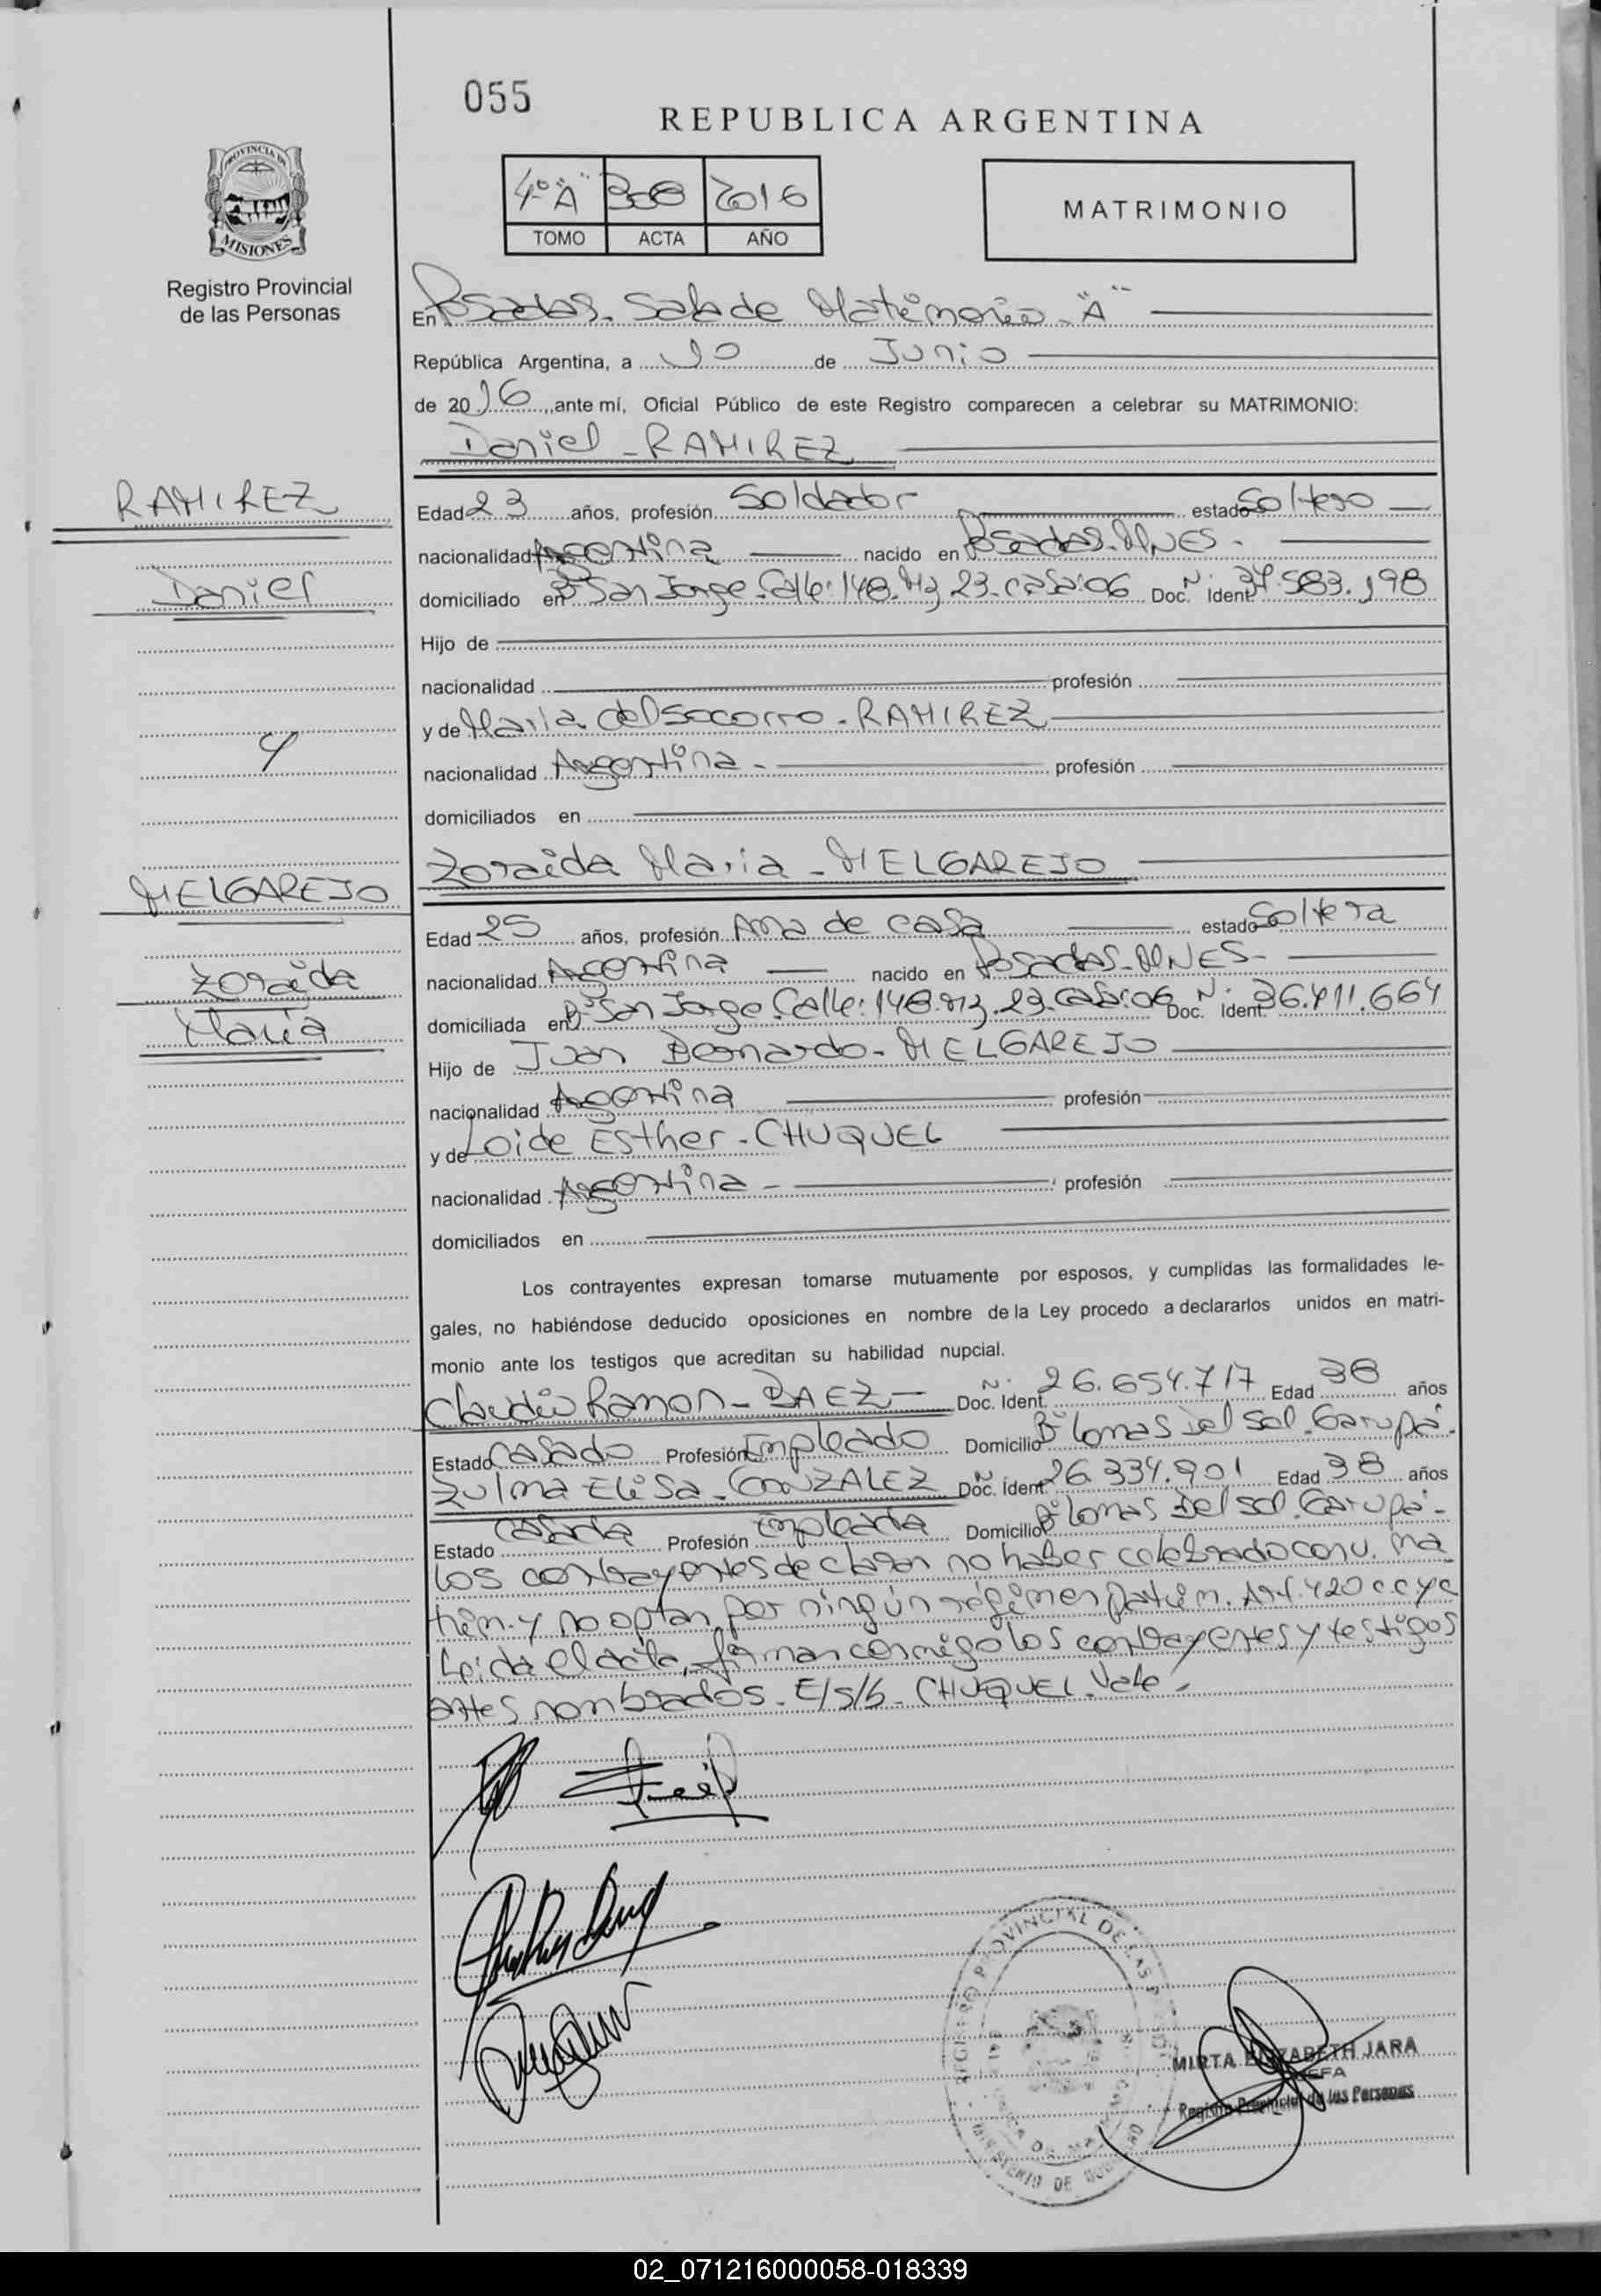 055
REPUBLICA ARGENTINA
4º "A" 308 2016
TOMO ACTA AÑO
MATRIMONIO
PROVINCIA DE
MISIONES
Registro Provincial
de las Personas
En Posadas. Sala de Matrimonio "A"
República Argentina, a 10 de Junio
de 2016, ante mí, Oficial Público de este Registro comparecen a celebrar su MATRIMONIO:
Daniel - RAMIREZ
RAMIREZ
Daniel
Edad 23 años, profesión Soldador estado Soltero
nacionalidad Argentina nacido en Posadas. MNES.
domiciliado en Bº San Jorge. Calle: 148. Mz 23. casa: 06 Doc. Nº Ident. 37.583.198
Hijo de
nacionalidad profesión
y de Maria del Socorro - RAMIREZ
nacionalidad Argentina - profesión
domiciliados en
y
Zoraida Maria - MELGAREJO
MELGAREJO
Zoraida
Maria
Edad 25 años, profesión Ama de casa estado Soltera
nacionalidad Argentina nacido en Posadas - MNES -
domiciliada en Bº San Jorge. Calle: 148. Mz. 23. casa: 06 Doc. Nº Ident. 36.411.664
Hijo de Juan Bernardo - MELGAREJO
nacionalidad Argentina profesión
y de Loide Esther - CHUQUEL
nacionalidad Argentina - profesión
domiciliados en
Los contrayentes expresan tomarse mutuamente por esposos, y cumplidas las formalidades le-
gales, no habiéndose deducido oposiciones en nombre de la Ley procedo a declararlos unidos en matri-
monio ante los testigos que acreditan su habilidad nupcial.
Claudio Ramon - BAEZ - Doc. Nº Ident. 26.654.717 Edad 38 años
Estado Casado Profesión Empleado Domicilio Bº Lomas del Sol. Garupá.
Zulma Elisa - GONZALEZ Doc. Nº Ident. 26.334.901 Edad 38 años
Estado Casada Profesión Empleada Domicilio Bº Lomas Del Sol. Garupá -
Los contrayentes declaran no haber celebrado conv. ma
trim. y no optan por ningún régimen patrim. Art. 420 c.c y c
Leida el acta, firman conmigo los contrayentes y testigos
antes nombrados. E/s/b - CHUQUEL. Vale.
REGISTRO PROVINCIAL DE LAS PERSONAS
MINISTERIO DE GOBIERNO
MIRTA ELIZABETH JARA
JEFA
Registro Provincial de las Personas
02_071216000058-018339